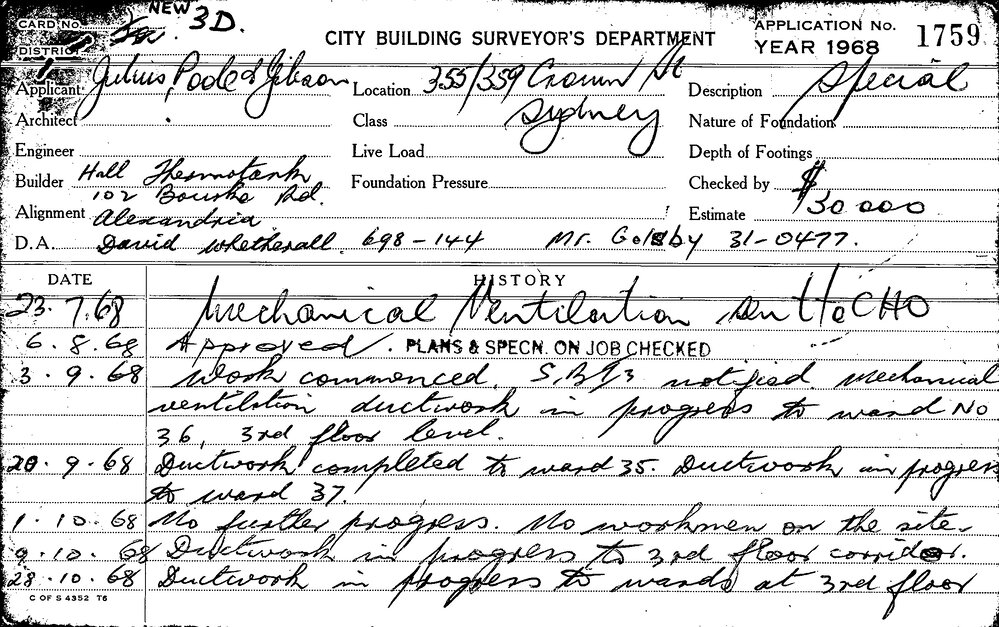 CARD No. NEW 3D.
DISTRICT
CITY BUILDING SURVEYOR'S DEPARTMENT
APPLICATION No. 1759
YEAR 1968
Applicant Julius Poole & Gibson Location 355/359 Crown St Description Special
Architect Class Sydney Nature of Foundation
Engineer Live Load Depth of Footings
Builder Hall Thermotank Foundation Pressure Checked by
102 Bourke Rd.
Alignment Alexandria Estimate $30 000
D.A. David Whetherall 698-144 Mr. Golsby 31-0477.
DATE HISTORY
23.7.68 Mechanical Ventilation in CHO
6.8.68 Approved. PLANS & SPECN. ON JOB CHECKED
3.9.68 Work commenced. notified. Mechanical
ventilation ductwork in progress to ward No
36, 3rd floor level.
20.9.68 Ductwork completed to ward 35. Ductwork in progress
to ward 37.
1.10.68 No further progress. No workmen on the site.
9.10.68 Ductwork in progress to 3rd floor corridor.
28.10.68 Ductwork in progress to wards at 3rd floor
C OF S 4352 T6